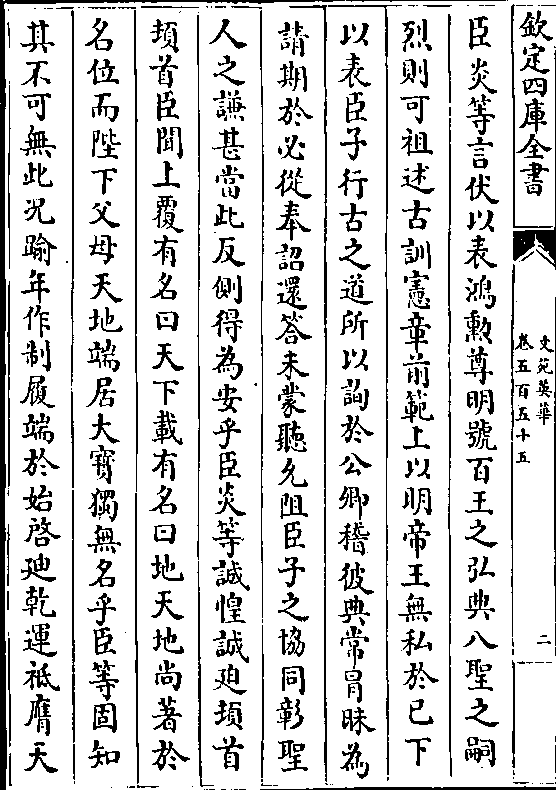 欽定四庫全書
文苑英華
卷五百五十五
二
臣炎等言伏以表鴻勲尊明號百王之弘典八聖之嗣
烈則可祖述古訓憲章前範上以明帝王無私於已下
以表臣子行古之道所以詢於公卿稽彼典常冐昧為
請期於必從奉詔還答未蒙聽允阻臣子之協同彰聖
人之謙甚當此反側得為安乎臣炎等誠惶誠廹頓首
頓首臣聞上覆有名曰天下載有名曰地天地尚著於
名位而陛下父母天地端居大寳獨無名乎臣等固知
其不可無此况踰年作制履端於始啓廸乾運祗膺天